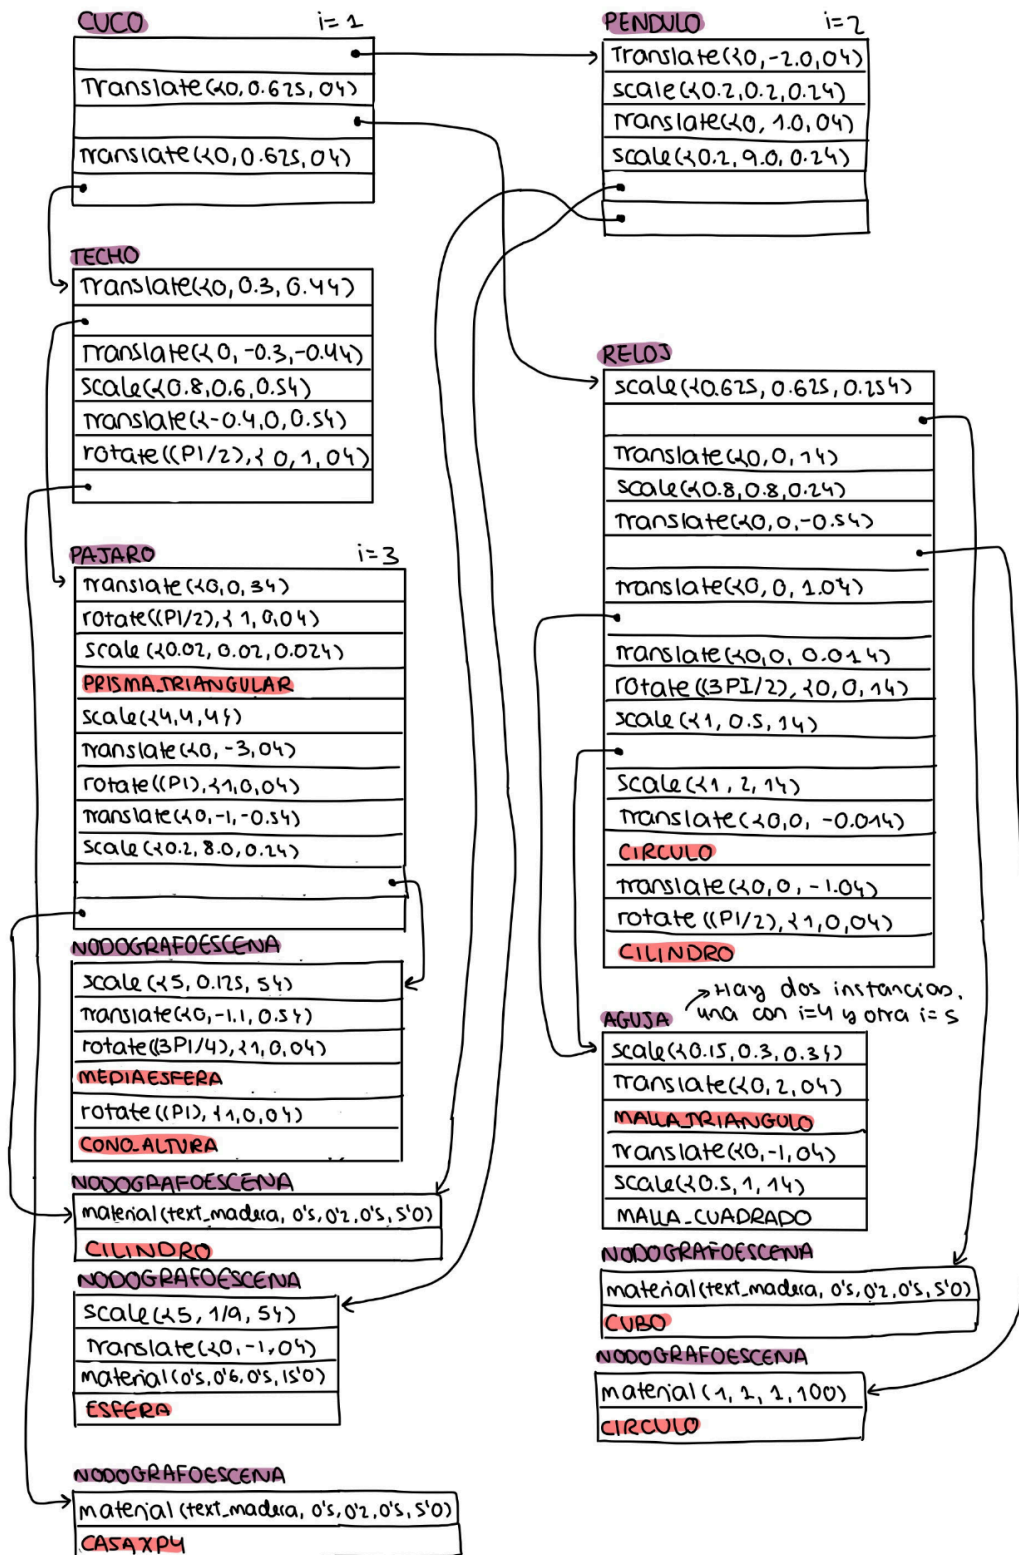 CUCO i=1
Translate({0, 0.625, 0})
Translate({0, 0.625, 0})
TECHO
Translate({0, 0.3, 0.4})
Translate({0, -0.3, -0.4})
scale({0.8, 0.6, 0.5})
Translate({-0.4, 0, 0.5})
rotate((PI/2), {0, 1, 0})
PAJARO i=3
Translate({0, 0, 3})
rotate((PI/2), {1, 0, 0})
scale({0.02, 0.02, 0.02})
PRISMA_TRIANGULAR
scale({4, 4, 4})
Translate({0, -3, 0})
rotate((PI), {1, 0, 0})
Translate({0, -1, -0.5})
scale({0.2, 8.0, 0.2})
NODOGRAFOESCENA
scale({5, 0.125, 5})
Translate({0, -1.1, 0.5})
rotate((3PI/4), {1, 0, 0})
MEDIAESFERA
rotate((PI), {1, 0, 0})
CONO_ALTURA
NODOGRAFOESCENA
material(text_madera, 0's, 0'2, 0's, 5'0)
CILINDRO
NODOGRAFOESCENA
scale({5, 1/9, 5})
Translate({0, -1, 0})
material(0's, 0'6, 0's, 15'0)
ESFERA
NODOGRAFOESCENA
material(text_madera, 0's, 0'2, 0's, 5'0)
CASAXPY
PENDULO i=2
Translate({0, -2.0, 0})
scale({0.2, 0.2, 0.2})
Translate({0, 1.0, 0})
scale({0.2, 9.0, 0.2})
RELOJ
scale({0.625, 0.625, 0.25})
Translate({0, 0, 1})
scale({0.8, 0.8, 0.2})
Translate({0, 0, -0.5})
Translate({0, 0, 1.0})
Translate({0, 0, 0.01})
rotate((3PI/2), {0, 0, 1})
scale({1, 0.5, 1})
scale({1, 2, 1})
Translate({0, 0, -0.01})
CIRCULO
Translate({0, 0, -1.0})
rotate((PI/2), {1, 0, 0})
CILINDRO
AGUJA
Hay dos instancias,
una con i=4 y otra i=5
scale({0.15, 0.3, 0.3})
Translate({0, 2, 0})
MALLA_TRIANGULO
Translate({0, -1, 0})
scale({0.5, 1, 1})
MALLA_CUADRADO
NODOGRAFOESCENA
material(text_madera, 0's, 0'2, 0's, 5'0)
CUBO
NODOGRAFOESCENA
material(1, 1, 1, 100)
CIRCULO